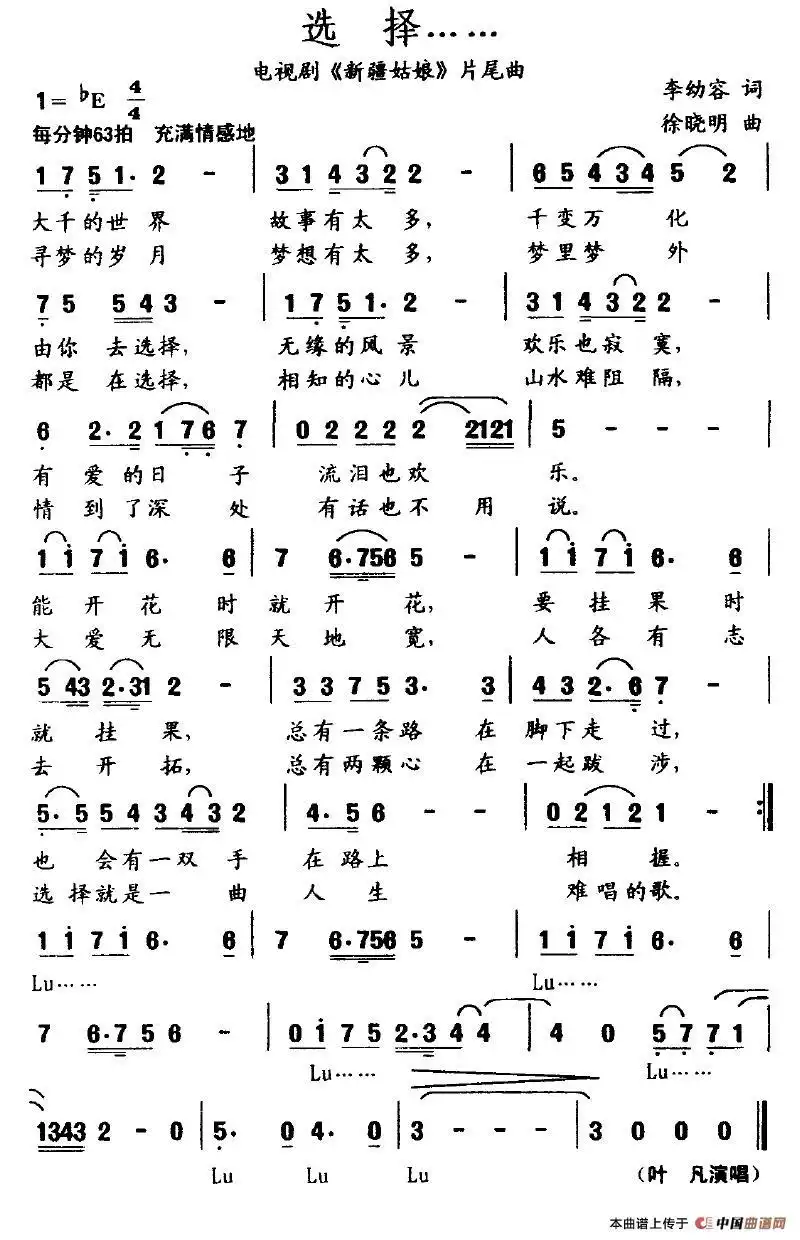 选 择……
电视剧《新疆姑娘》片尾曲
1= ♭E 4/4
李幼容 词
每分钟63拍 充满情感地
徐晓明 曲
1 7 5 1· 2 - | 3 1 4 3 2 2 - | 6 5 4 3 4 5 2 |
大千的世界 故事有太多, 千变万化
寻梦的岁月 梦想有太多, 梦里梦外
7 5 5 4 3 - | 1 7 5 1· 2 - | 3 1 4 3 2 2 - |
由你去选择, 无缘的风景 欢乐也寂寞,
都是在选择, 相知的心儿 山水难阻隔,
6 2· 2 1 7 6 7 | 0 2 2 2 2 2 2121 | 5 - - - |
有爱的日子 流泪也欢乐。
情到了深处 有话也不用说。
1 i 7 i 6· 6 | 7 6·756 5 - | 1 i 7 i 6· 6 |
能开花时就开花, 要挂果时
大爱无限天地宽, 人各有志
5 43 2·31 2 - | 3 3 7 5 3· 3 | 4 3 2· 6 7 - |
就挂果, 总有一条路在脚下走过,
去开拓, 总有两颗心在一起跋涉,
5· 5 5 4 3 4 3 2 | 4· 5 6 - - | 0 2 1 2 1 - :‖
也会有一双手在路上 相握。
选择就是一曲人生 难唱的歌。
1 i 7 i 6· 6 | 7 6·756 5 - | 1 i 7 i 6· 6 |
Lu…… Lu……
7 6·7 5 6 - | 0 i 7 5 2·3 4 4 | 4 0 5 7 7 1 |
Lu…… Lu……
1343 2 - 0 | 5· 0 4· 0 | 3 - - - | 3 0 0 0 ‖
Lu Lu Lu (叶 凡演唱)
本曲谱上传于 中国曲谱网